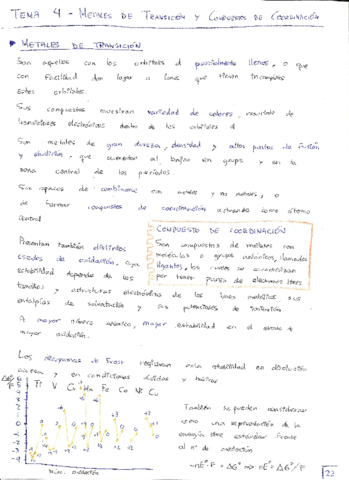 TEMA 4 - METALES DE TRANSICIÓN Y COMPUESTOS DE COORDINACIÓN
METALES DE TRANSICIÓN
Son aquellos con los orbitales d parcialmente llenos, o que
con facilidad dan lugar a iones que tienen incompletos
estos orbitales.
Sus compuestos muestran variedad de colores, resultado de
transiciones electrónicas dentro de los orbitales d
Son metales de gran dureza, densidad y altos puntos de fusión
y ebullición, que aumentan al bajar en grupo y en la
zona central de los periodos.
Son capaces de combinarse con metales y no metales, o
de formar compuestos de coordinación actuando como átomo
central
COMPUESTO DE COORDINACIÓN
Son compuestos de metales con
moléculas o grupos aniónicos, llamados
ligantes, los cuales se caracterizan
por tener pares de electrones libres
Presentan también distintos
estados de oxidación, cuya
estabilidad depende de los
tamaños y estructuras electrónicas de los iones metálicos, sus
entalpías de solvatación y sus potenciales de ionización
A mayor número atómico, mayor estabilidad en el estado +
mayor oxidación.
Los diagramas de Frost la estabilidad en disolución
acuosa y en condiciones ácidas y básicas
Ti V Cr Mn Fe Co Ni Cu
También se pueden considerar
como una representación de la
energía libre estándar frente
al nº de oxidación
-nE°·F = ΔG° → nE° = ΔG°/F
Núm. oxidación
22